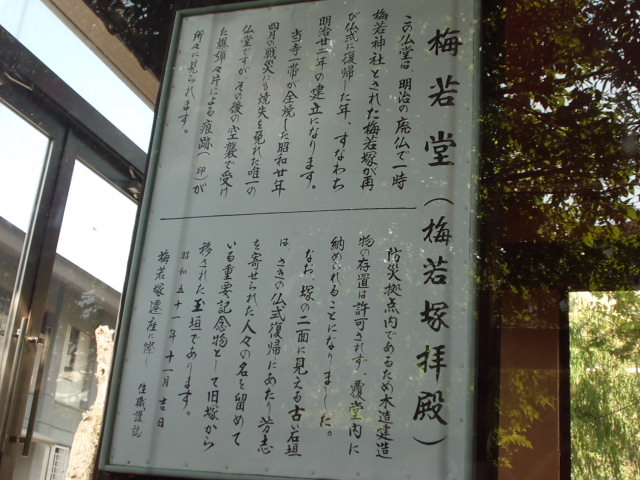 梅若堂（梅若塚拝殿）
この仏堂は、明治の廃仏で一時
梅若神社とされた梅若塚が再
び仏式に復帰した年、すなわち
明治廿二年の建立になります。
当寺一帯が全焼した昭和廿年
四月の戦災にも焼失を免れた唯一の
仏堂ですが、その後の空襲で受け
た爆弾破片による痕跡（印）が
所々に見られます。
防災拠点内であるため木造建造
物の存置は許可されず、覆堂内に
納められることになりました。
なお、塚の二面に見える古石垣
は、さきの仏式復帰にあたり浄志
を寄せられた人々の名を留めて
いる重要記念物として旧塚から
移された玉垣であります。
昭和五十一年十一月吉日
梅若塚遷座に際し 住職謹誌